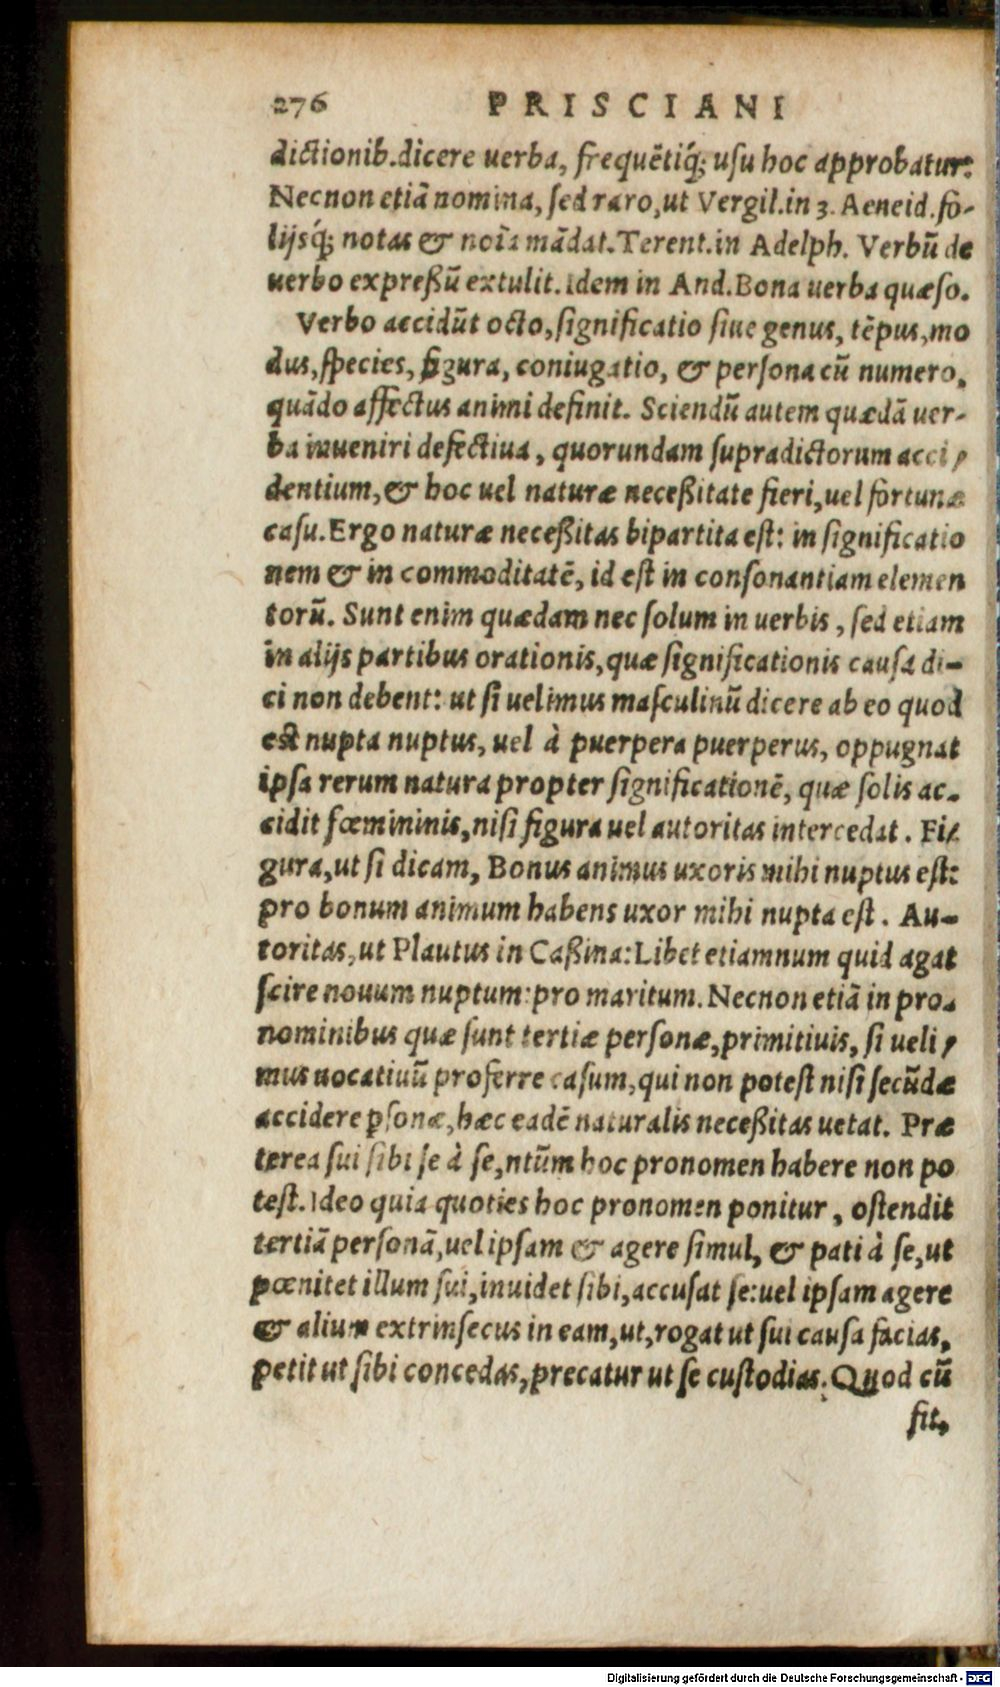 276 PRISCIANI
dictionib.dicere uerba, frequẽtiq́; uſu hoc approbatur:
Necnon etiã nomina, ſed raro,ut Vergil.in 3. Aeneid.fo-
lijsq́; notas & noĩa mãdat.Terent.in Adelph. Verbũ de
uerbo expreßũ extulit.Idem in And.Bona uerba quæſo.
Verbo accidũt octo,ſignificatio ſiue genus, tẽpus,mo
dus,ſpecies, figura, coniugatio, & perſona cũ numero,
quãdo affectus animi definit. Sciendũ autem quædã uer-
ba inueniri defectiua, quorundam ſupradictorum acci-
dentium,& hoc uel naturæ neceßitate fieri,uel fortunæ
caſu.Ergo naturæ neceßitas bipartita eſt: in ſignificatio
nem & in commoditatẽ, id eſt in conſonantiam elemen
torũ. Sunt enim quædam nec ſolum in uerbis, ſed etiam
in alijs partibus orationis,quæ ſignificationis cauſa di-
ci non debent: ut ſi uelimus maſculinũ dicere ab eo quod
est nupta nuptus, uel à puerpera puerperus, oppugnat
ipſa rerum natura propter ſignificationẽ, quæ ſolis ac-
cidit fœmininis,niſi figura uel autoritas intercedat. Fi-
gura,ut ſi dicam, Bonus animus uxoris mihi nuptus eſt:
pro bonum animum habens uxor mihi nupta eſt. Au-
toritas,ut Plautus in Caßina:Libet etiamnum quid agat
ſcire nouum nuptum:pro maritum. Necnon etiã in pro-
nominibus quæ ſunt tertiæ perſonæ,primitiuis, ſi ueli-
mus uocatiuũ proferre caſum,qui non poteſt niſi ſecũdæ
accidere pſonæ,hæc eadẽ naturalis neceßitas uetat. Præ
terea ſui ſibi ſe à ſe,ntũm hoc pronomen habere non po
teſt.Ideo quia quoties hoc pronomen ponitur, oſtendit
tertiã perſonã,uel ipſam & agere ſimul, & pati à ſe,ut
pœnitet illum ſui,inuidet ſibi,accuſat ſe:uel ipſam agere
& alium extrinſecus in eam,ut,rogat ut ſui cauſa facias,
petit ut ſibi concedas,precatur ut ſe cuſtodias.Quod cũ
ſit,
Digitalisierung gefördert durch die Deutsche Forschungsgemeinschaft - DFG